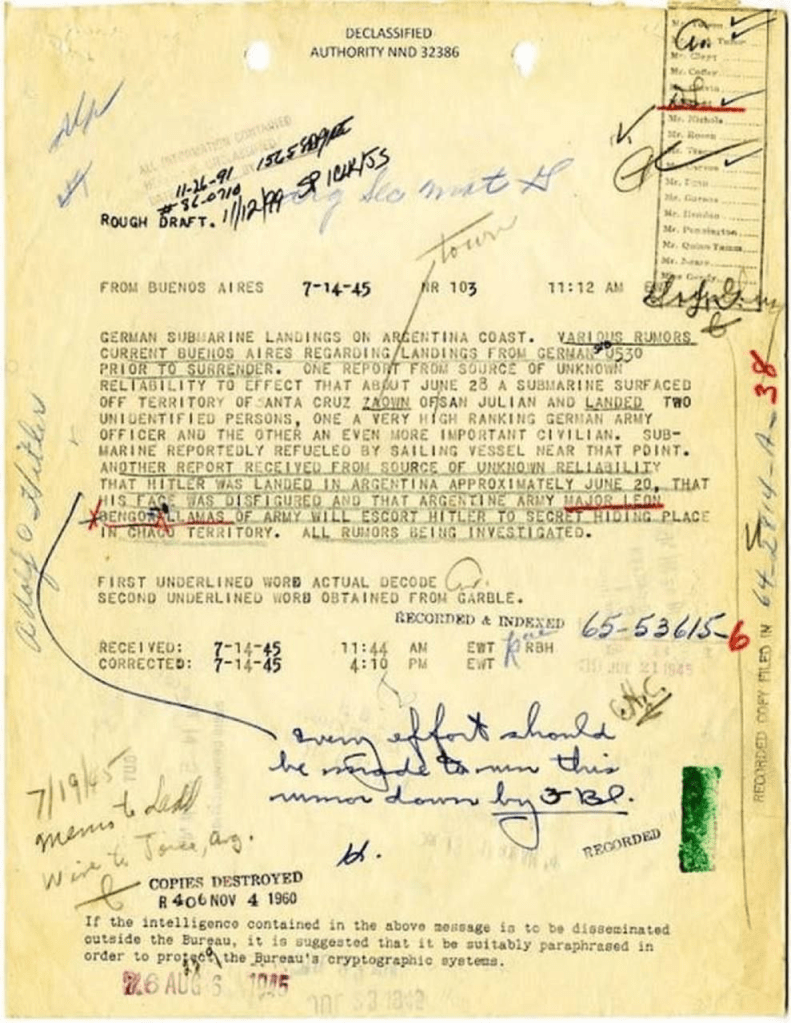 DECLASSIFIED
AUTHORITY NND 32386
Mr. Clegg
Mr. Coffey
Mr. Nichols
Mr. Rosen
Mr. Carson
Mr. Egan
Mr. Gurnea
Mr. Hendon
Mr. Pennington
Mr. Quinn Tamm
Mr. Nease
Miss Gandy
ALL INFORMATION CONTAINED
11-26-91
#86-0710
11/12/99
ROUGH DRAFT.
town
FROM BUENOS AIRES 7-14-45 NR 103 11:12 AM
GERMAN SUBMARINE LANDINGS ON ARGENTINA COAST. VARIOUS RUMORS
CURRENT BUENOS AIRES REGARDING LANDINGS FROM GERMAN U530
PRIOR TO SURRENDER. ONE REPORT FROM SOURCE OF UNKNOWN
RELIABILITY TO EFFECT THAT ABOUT JUNE 28 A SUBMARINE SURFACED
OFF TERRITORY OF SANTA CRUZ ZAOWN OF SAN JULIAN AND LANDED TWO
UNIDENTIFIED PERSONS, ONE A VERY HIGH RANKING GERMAN ARMY
OFFICER AND THE OTHER AN EVEN MORE IMPORTANT CIVILIAN. SUB-
MARINE REPORTEDLY REFUELED BY SAILING VESSEL NEAR THAT POINT.
ANOTHER REPORT RECEIVED FROM SOURCE OF UNKNOWN RELIABILITY
THAT HITLER WAS LANDED IN ARGENTINA APPROXIMATELY JUNE 20, THAT
HIS FACE WAS DISFIGURED AND THAT ARGENTINE ARMY MAJOR LEON
BENGOA LLAMAS OF ARMY WILL ESCORT HITLER TO SECRET HIDING PLACE
IN CHACO TERRITORY. ALL RUMORS BEING INVESTIGATED.
Adolf Hitler
FIRST UNDERLINED WORD ACTUAL DECODE
SECOND UNDERLINED WORD OBTAINED FROM GARBLE.
RECORDED & INDEXED 65-53615-6
RECEIVED: 7-14-45 11:44 AM EWT RBH
CORRECTED: 7-14-45 4:10 PM EWT
RECORDED COPY FILED IN 64-2814-A-38
every effort should
be made to run this
rumor down by FBI.
H.
7/19/45
memo to Ladd
Wire to Joice, Arg.
RECORDED
COPIES DESTROYED
R 406 NOV 4 1960
If the intelligence contained in the above message is to be disseminated
outside the Bureau, it is suggested that it be suitably paraphrased in
order to protect the Bureau's cryptographic systems.
76 AUG 6 1945